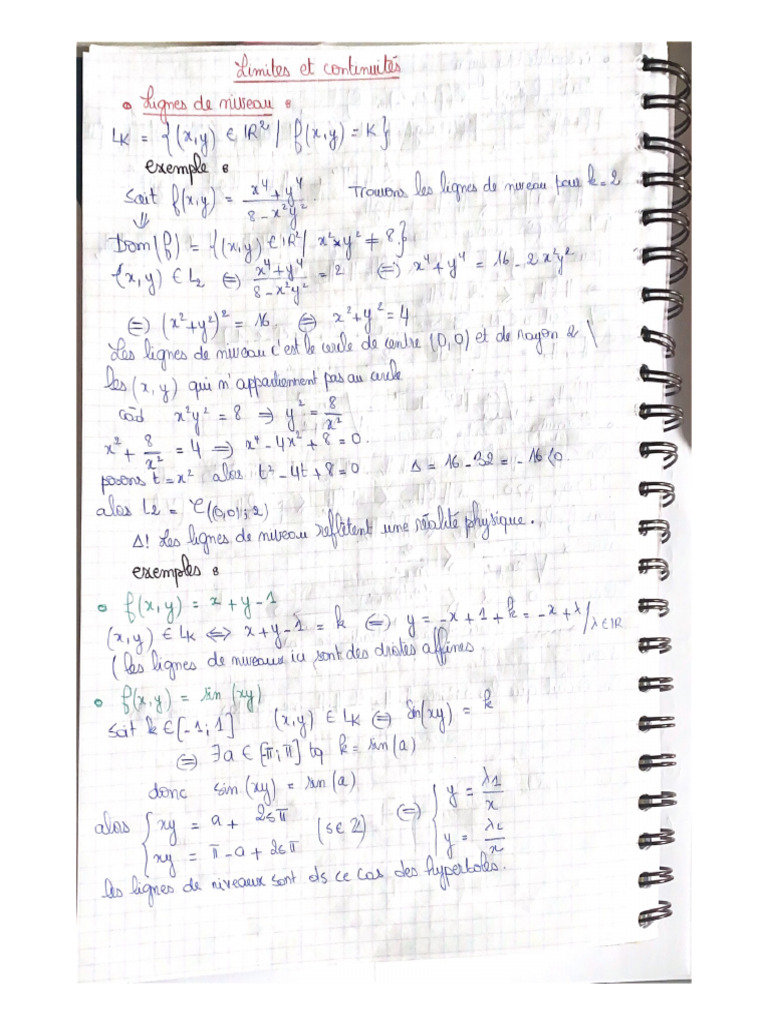 Limites et continuités
• Lignes de niveau :
LK = {(x,y) ∈ IR² / f(x,y) = K}
exemple :
Soit f(x,y) = (x⁴+y⁴)/(8-x²y²). Trouvons les lignes de niveau pour k=2
⇓
Dom(f) = {(x,y) ∈ IR² / x²*y² ≠ 8}
(x,y) ∈ L₂ ⇔ (x⁴+y⁴)/(8-x²y²) = 2 ⇔ x⁴+y⁴ = 16-2x²y²
⇔ (x²+y²)² = 16 ⇔ x²+y² = 4
Les lignes de niveau c'est le cercle de centre (0,0) et de rayon 2 \
les (x,y) qui n'appartiennent pas au cercle
càd x²y² = 8 ⇒ y² = 8/x²
x² + 8/x² = 4 ⇒ x⁴-4x²+8=0.
posons t=x² alors t²-4t+8=0. Δ = 16-32 = -16<0.
alors L2 = C((0,0);2)
Δ! Les lignes de niveau reflètent une réalité physique.
exemples :
• f(x,y) = x+y-1
(x,y) ∈ LK ⇔ x+y-1 = k ⇔ y = -x+1+k = -x+λ / λ∈IR
(les lignes de niveaux ici sont des droites affines
• f(x,y) = sin(xy)
soit k∈[-1;1] (x,y) ∈ LK ⇔ sin(xy) = k
⇔ ∃a ∈ [π;π] tq k = sin(a)
donc sin(xy) = sin(a)
alors { xy = a + 2sπ (s∈Z) ⇔ { y = λ1/x
xy = π-a+2sπ y = λ2/x
les lignes de niveaux sont ds ce cas des hyperboles.